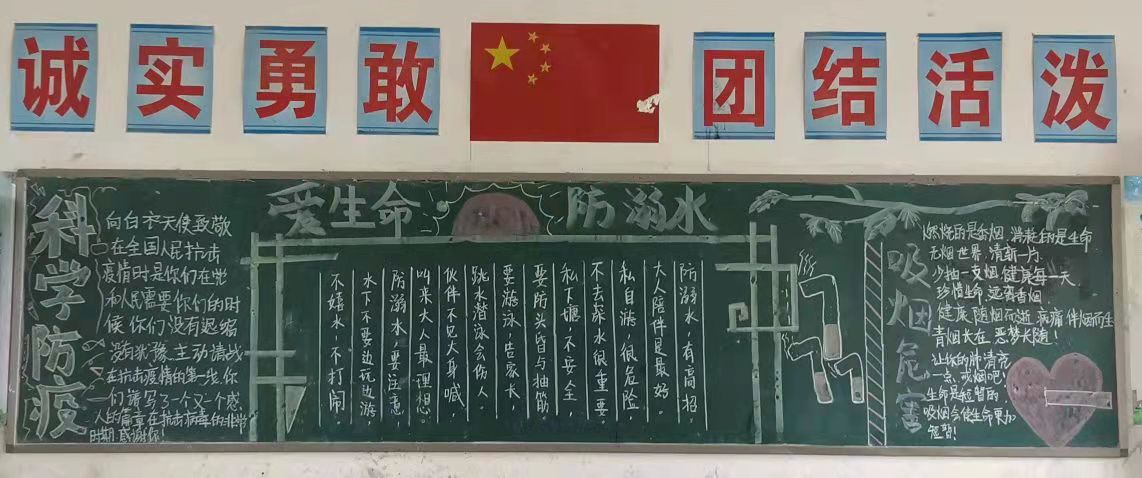 诚实勇敢
团结活泼
科学防疫
向白衣天使致敬
在全国人民抗击
疫情时是你们在党
和人民需要你们的时
候你们没有退缩
没有犹豫、主动请战
在抗击疫情的第一线,你
们谱写了一个又一个感
人的篇章在抗击病毒的非常
时期,感谢你!
爱生命
防溺水
防溺水,有高招,
大人陪伴是最好。
私自游,很危险
不去深水很重要
私下塘,不安全,
要防头昏与抽筋
要游泳,告家长,
跳水潜泳会伤人
伙伴不见大声喊,
叫来大人最理想。
防溺水,要注意,
水下不要边玩边游,
不嬉水,不打闹。
吸烟危害
燃烧的是香烟,消耗的是生命
无烟世界,清新一片.
少抽一支烟,健康每一天
珍惜生命,远离香烟!
健康随烟而逝,病痛伴烟而生
青烟长在,恶梦长随!
让你的肺清亮
一点,戒烟吧!
生命是短暂的,
吸烟会使生命更加
短暂!